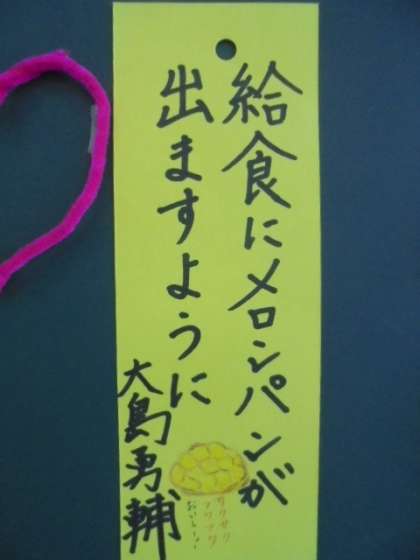 給食にメロンパンが
出ますように
大島勇輔
サクサク
フワフワ
おいしいな!